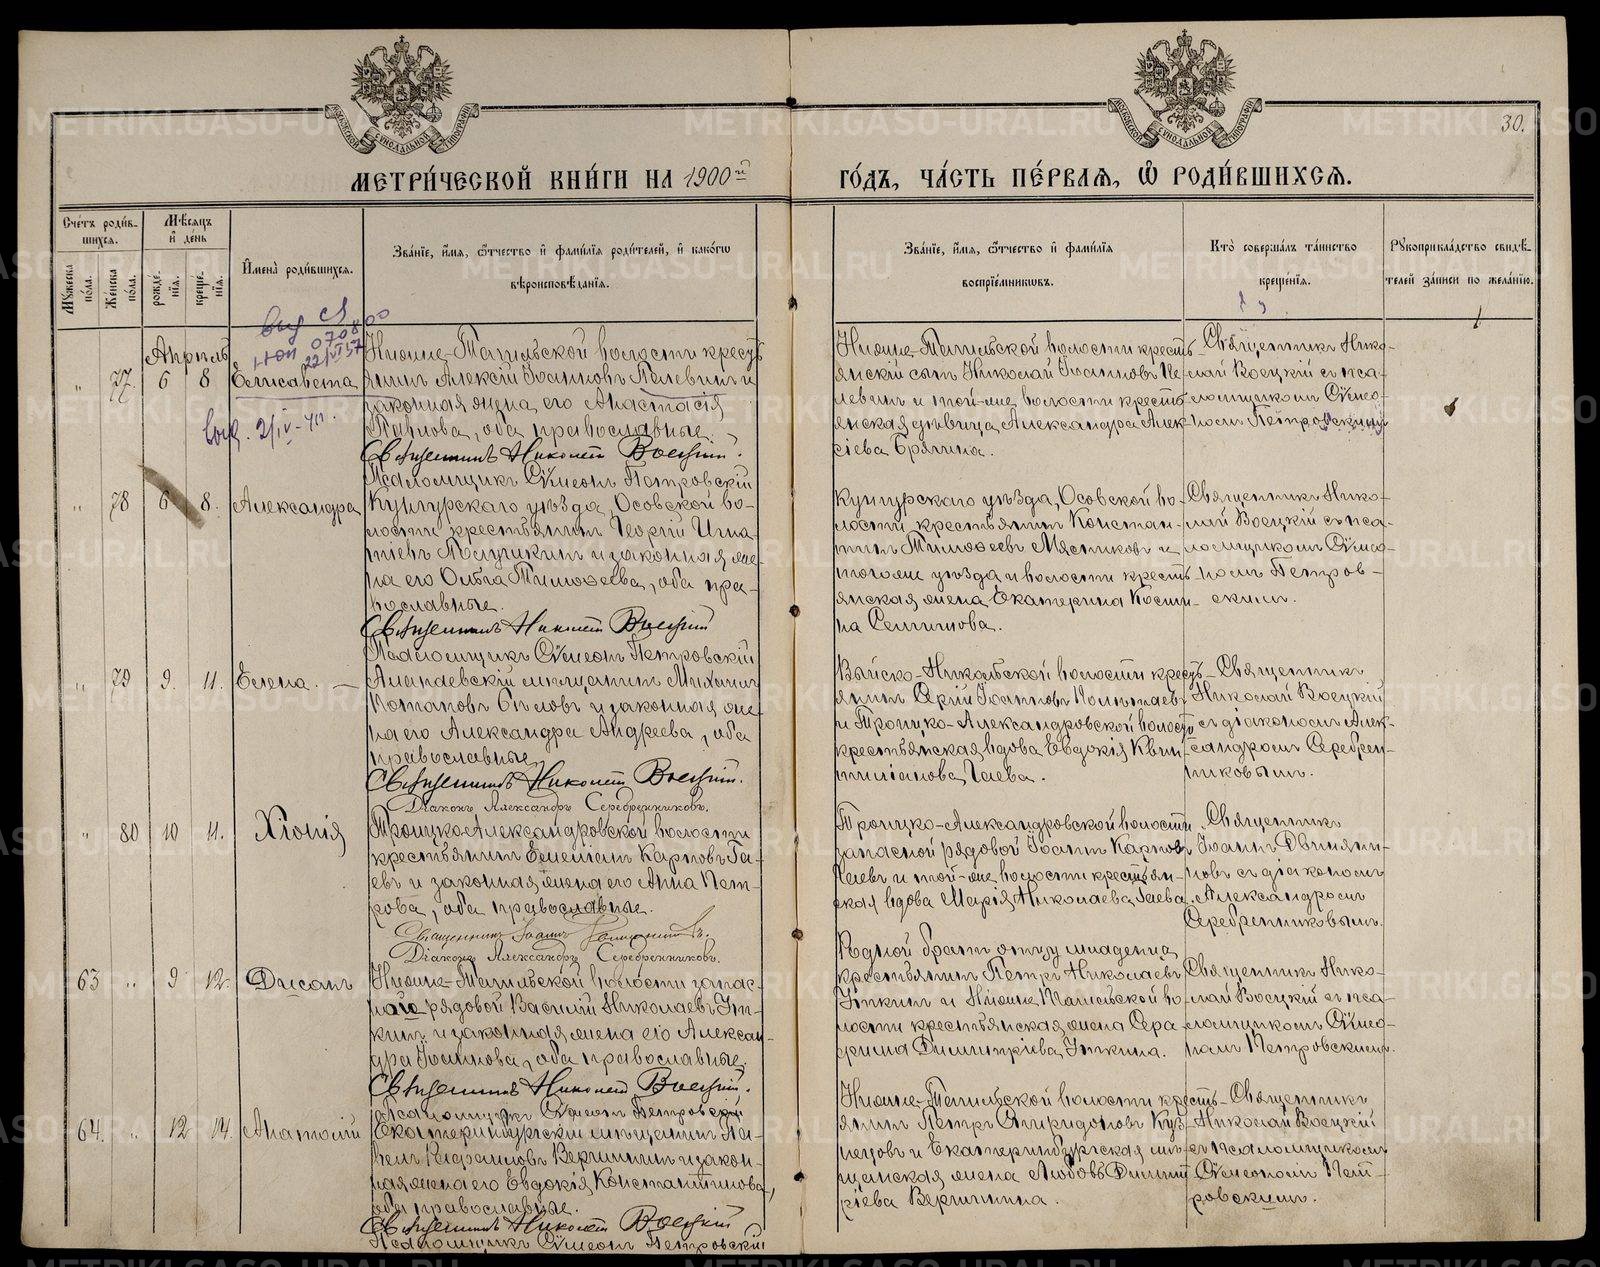 МЕТРИ́ЧЕСКОЙ КНИ́ГИ НА 1900й
ГО́ДЪ, ЧА́СТЬ ПЕ́РВАѦ, Ѿ РОДИ́ВШИХСѦ.
30.
Счетъ роди́в-
шихся.
Мѣ́сяцъ
и҆ де́нь
Мꙋжеска по́ла.
Же́нска по́ла.
рожде́нїя.
креще́нїя.
И҆мена̀ роди́вшихся.
Зва́нїе, и҆́мя, ѻ҆́тчество и҆ фами́лїя роди́телей, и҆ како́гѡ
вѣроисповѣ́данїя.
Зва́нїе, и҆́мя, ѻ҆́тчество и҆ фами́лїя
воспрїе́мникѡвъ.
Кто̀ соверша́лъ та́инство
креще́нїя.
Рꙋкоприкла́дство свидѣ́-
телей за́писи по жела́нїю.
Апрѣль
77. 6 8 Елисавета
Нижне-Тагильской волости кресть
янинъ Алексій Іоанновъ Пелевинъ и
законная жена его Анастасія
Павлова, оба православные.
Священникъ Николай Воецкій.
Псаломщикъ Сѵмеонъ Петровскій
Нижне-Тагильской волости кресть-
янскій сынъ Николай Іоанновъ Пе-
левинъ и той-же волости кресть-
янская дѣвица Александра Алек-
сіева Брягина.
Священникъ Нико-
лай Воецкій съ пса-
ломщикомъ Сѵмео-
номъ Петровскимъ
78 6 8. Александра
Кунгурскаго уѣзда, Осовской во-
лости крестьянинъ Георгій Игна-
тіевъ Полушкинъ и законная же-
на его Ольга Тимоѳеева, оба пра-
вославные.
Священникъ Николай Воецкій
Псаломщикъ Сѵмеонъ Петровскій
Кунгурскаго уѣзда, Осовской во-
лости, крестьянинъ Констан-
тинъ Тимоѳеевъ Мясниковъ и
тогоже уѣзда и волости кресть-
янская жена Екатерина
на Селиннова.
Священникъ Нико-
лай Воецкій съ пса-
ломщикомъ Сѵмео-
номъ Петров-
скимъ.
79 9. 11. Елена.
Алапаевскій мѣщанинъ Михаилъ
Потаповъ Бѣловъ и законная же-
на его Александра Андреева, оба
православные.
Священникъ Николай Воецкій.
Діаконъ Александръ Серебренниковъ.
Выйско-Никольской волости кресть-
янинъ Сергій Іоанновъ
и Троицко-Александровской волости
крестьянская вдова Евдокія Квин-
тиліанова Гаева.
Священникъ
Николай Воецкій
съ діакономъ Алек-
сандромъ Серебрен-
никовымъ.
80 10 11. Хіонія
Троицко-Александровской волости
крестьянинъ Емеліанъ Карповъ Га-
евъ и законная жена его Анна Пет-
рова, оба православные.
Священникъ Іоаннъ
Діаконъ Александръ Серебренниковъ.
Троицко-Александровской волости
запасной рядовой Іоаннъ Карповъ
Гаевъ и той-же волости крестьян-
ская вдова Марія Николаева Гаева.
Священникъ
Іоаннъ
съ діакономъ
Александромъ
Серебренниковымъ.
63 9 12. Дисанъ
Нижне-Тагильской волости запас-
рядовой Василій Николаевъ Ут-
кинъ и законная жена его Алексан-
дра Іоаннова, оба православные.
Священникъ Николай Воецкій.
Псаломщикъ Сѵмеонъ Петровскій
Родной братъ отцу младенца
крестьянинъ Петръ Николаевъ
Уткинъ и Нижне-Тагильской во-
лости крестьянская жена Сера-
фима Димитріева Уткина.
Священникъ Нико-
лай Воецкій съ пса-
ломщикомъ Сѵмео-
номъ Петровскимъ.
64. 12 14. Анатолій
Екатеринбургскій мѣщанинъ Па-
велъ Вершининъ и закон-
ная жена его Евдокія Константинова,
оба православные.
Священникъ Николай Воецкій
Псаломщикъ Сѵмеонъ Петровскій
Нижне-Тагильской волости кресть-
янинъ Петръ Спиридоновъ Куз-
нецовъ и Екатеринбургская мѣ-
щанская жена Любовь Димит-
ріева Вершинина.
Священникъ
Николай Воецкій
съ псаломщикомъ
Сѵмеономъ Пет-
ровскимъ.
METRIKI.GASO-URAL.RU